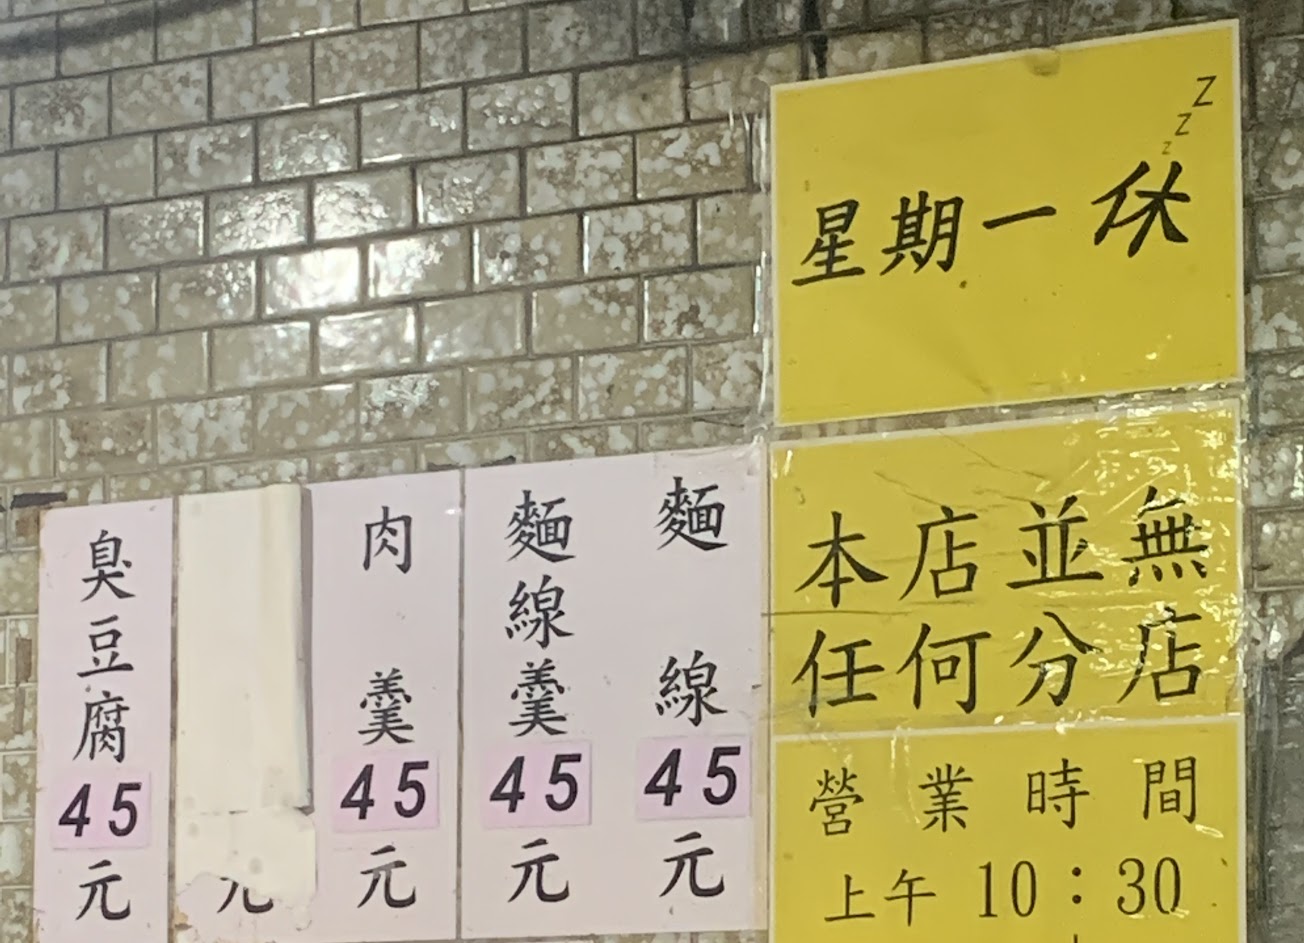 z
z
z
星期一休
本店並無
任何分店
營業時間
上午 10：30
麵線45元
麵線羹45元
肉羹45元
元
臭豆腐45元